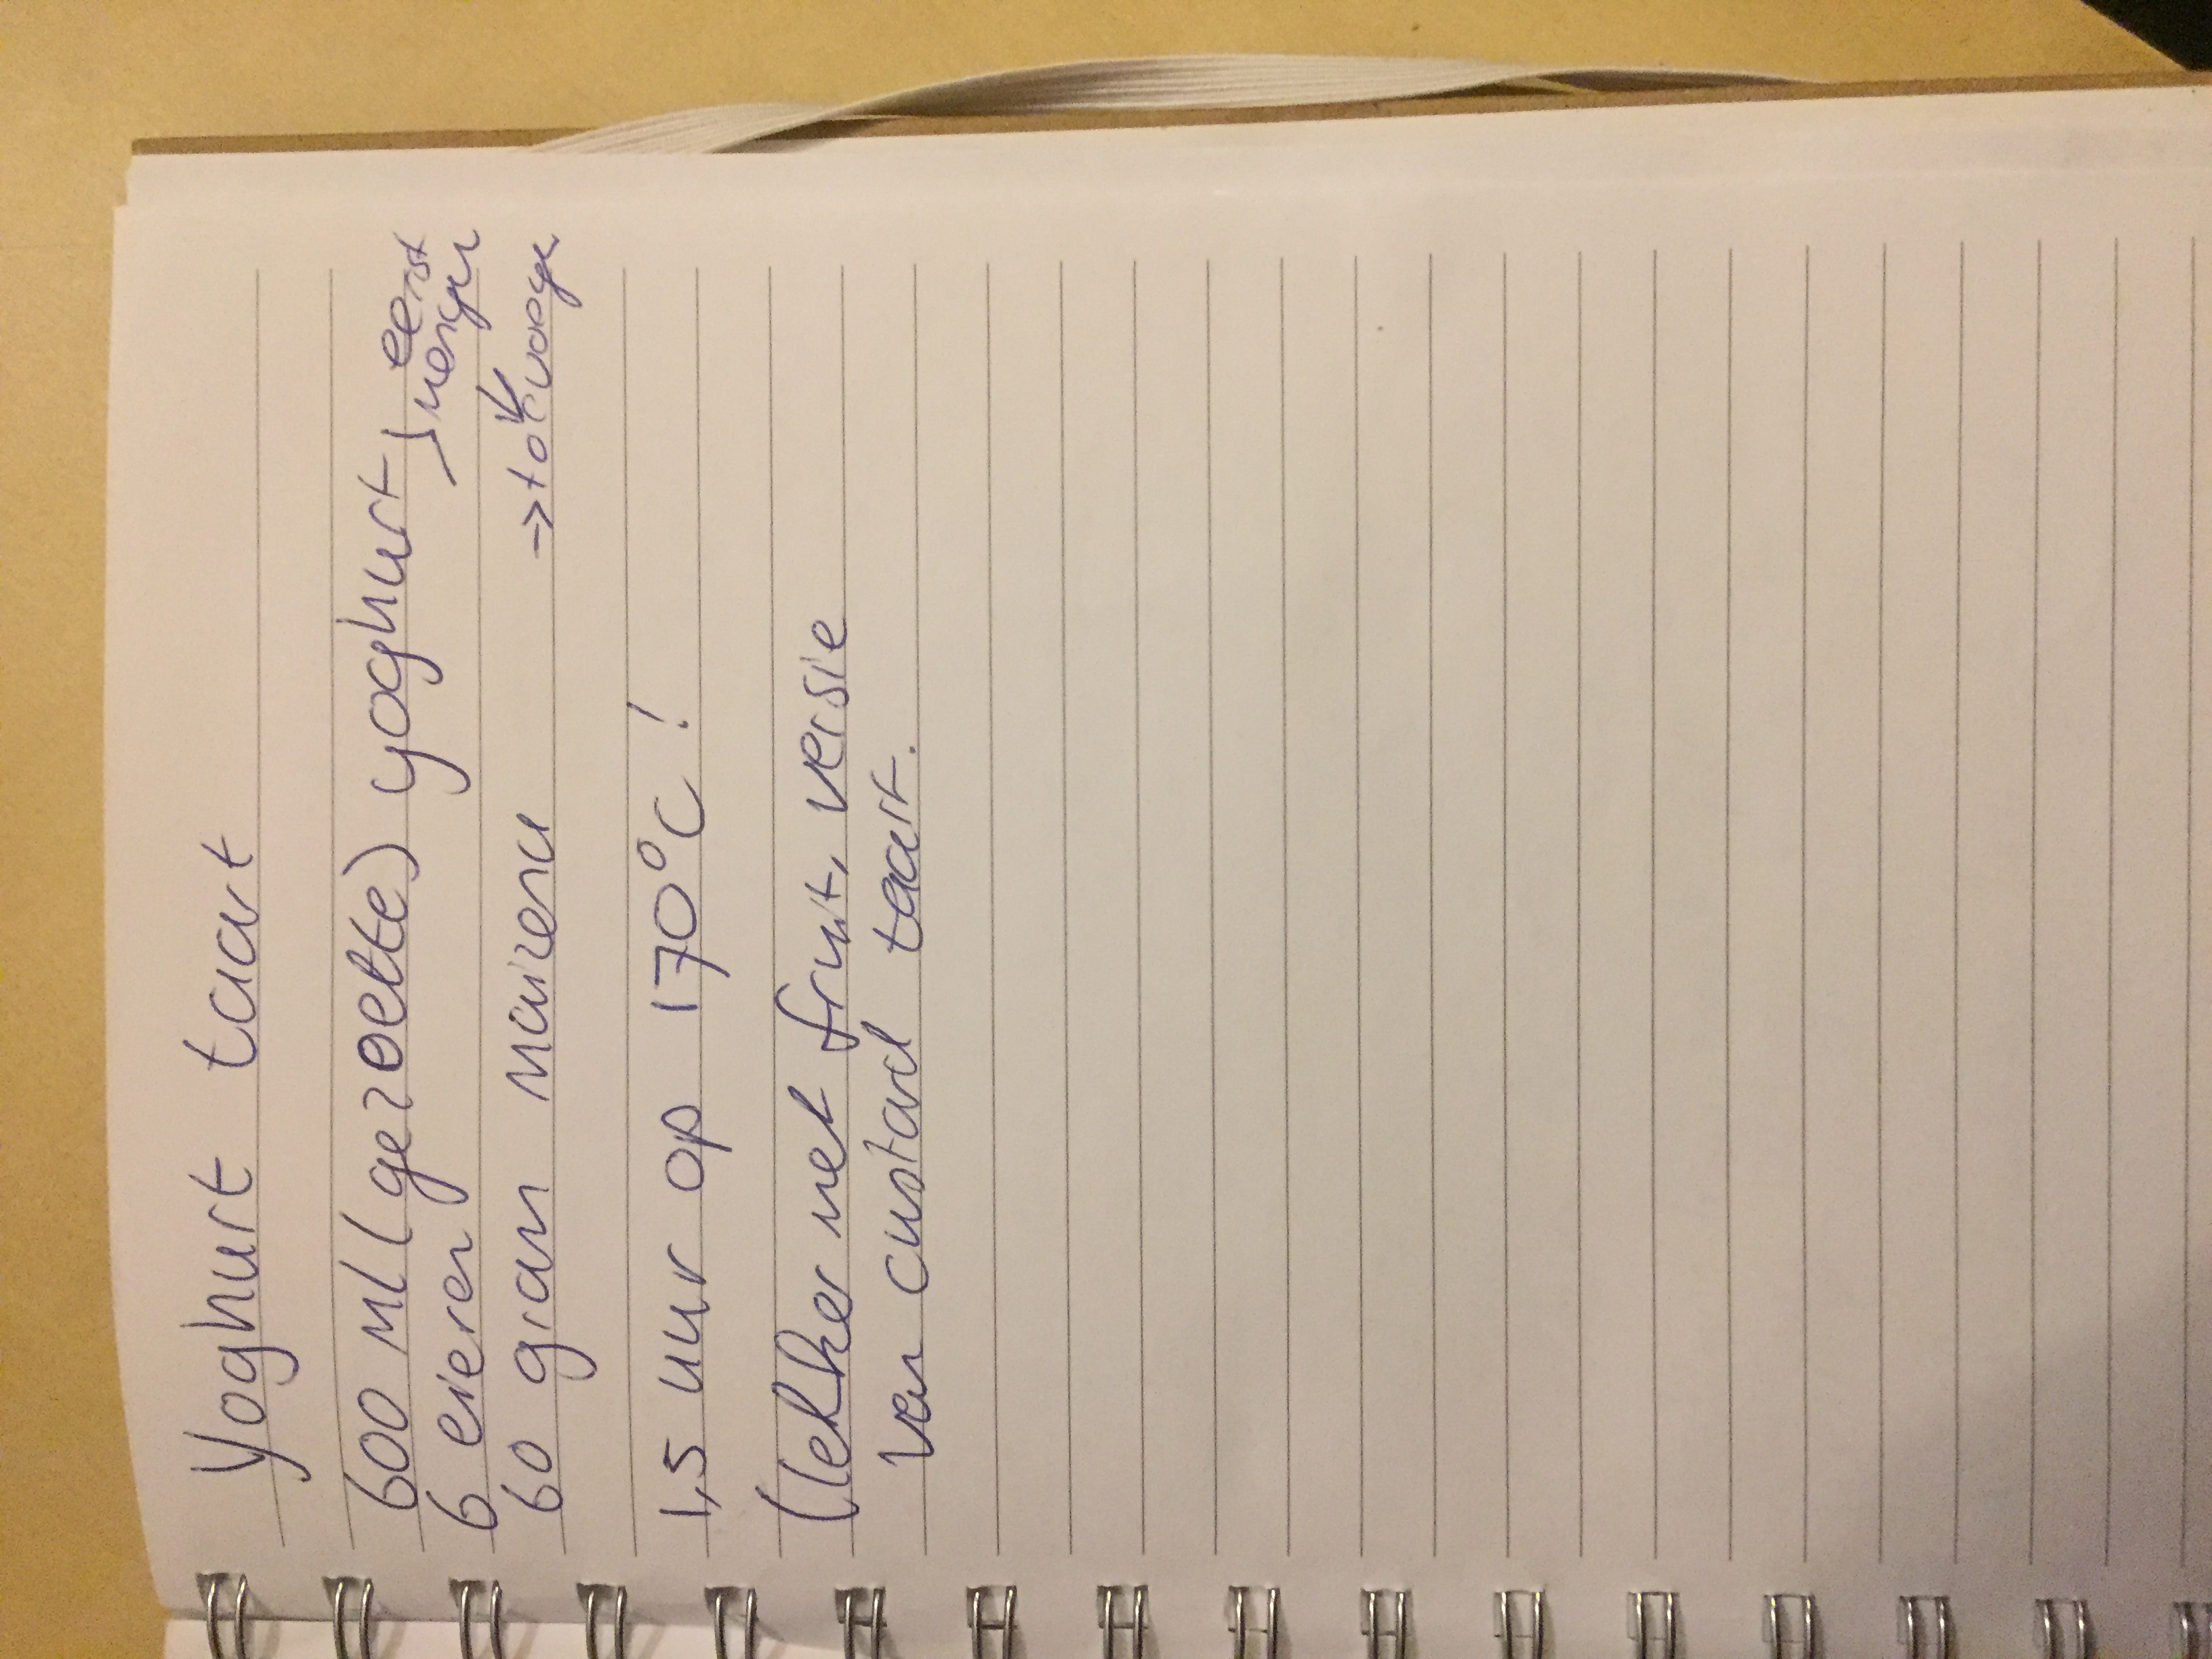 Yoghurt taart
600 ml (gezoette) yoghurt } eerst
6 eieren mengen
60 gram maizena → toevoegen
1,5 uur op 170°C !
(lekker met fruit, versie
van custard taart.